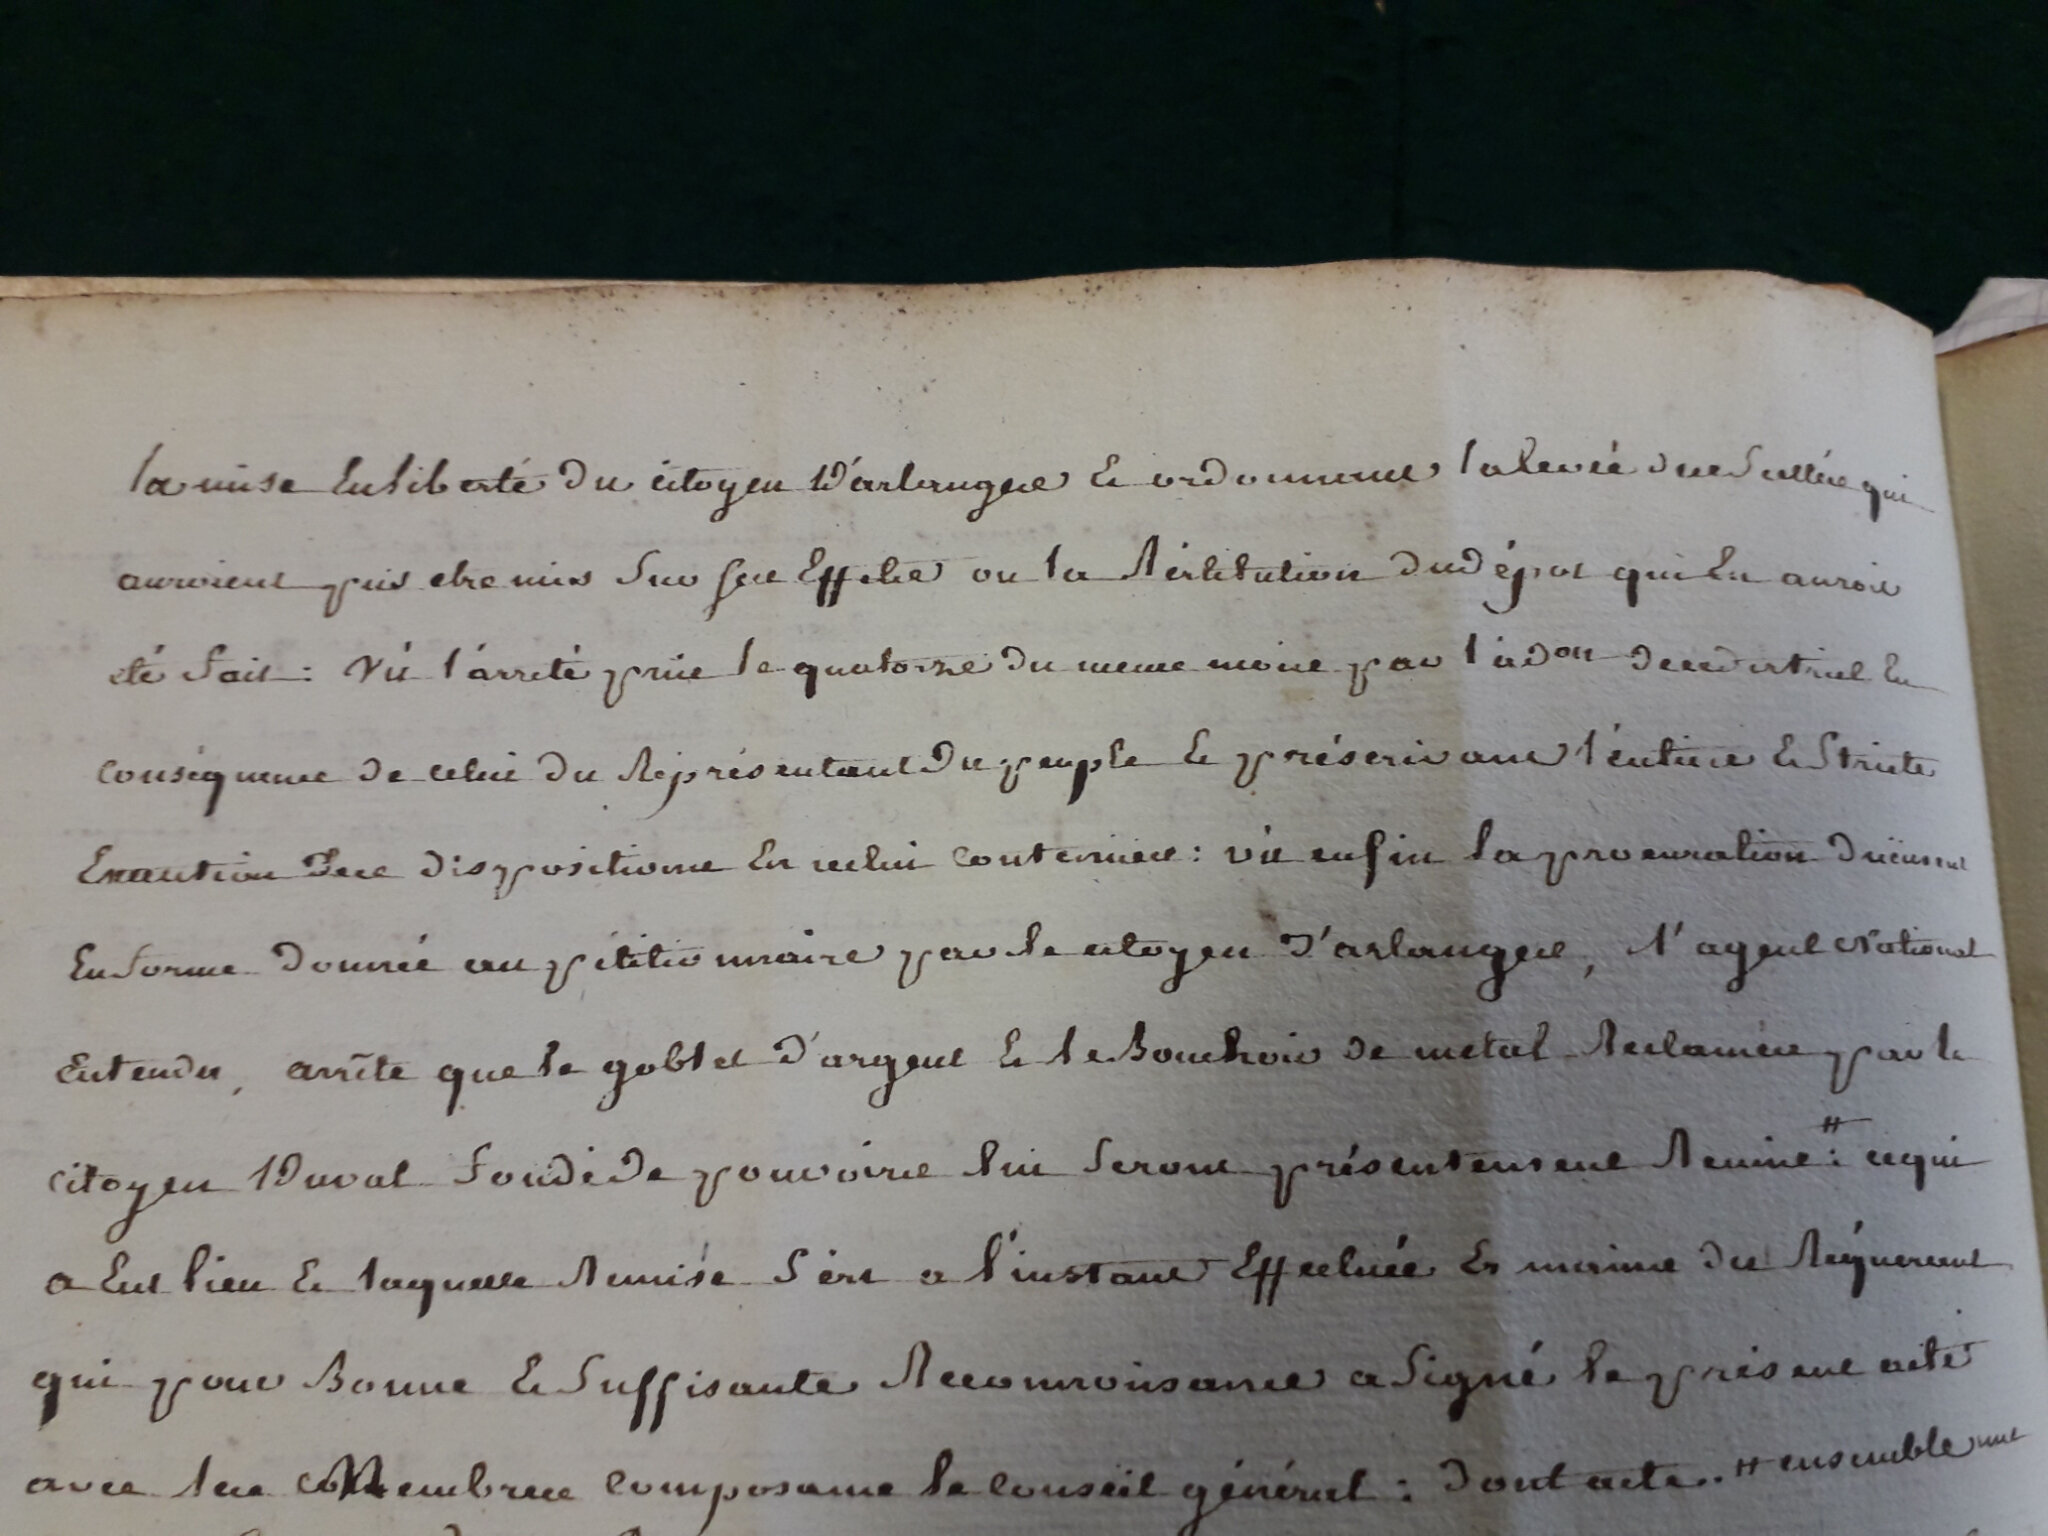 la mise En liberté du citoyen D'arlanges & ordonnant la levée des Scellés qui
auroient puis etre mis Sur ses Effets ou la Réstitution du dépot qui En auroit
été fait : Vû l'arrêté pris le quatorze du meme mois par l'adon. de ce district En
conséquence de celui du Représentant du peuple & préscrivant l'entiere & Stricte
Execution des dispositions En icelui contenues : vû enfin la procuration duëment
En forme donnée au pétitionnaire par le citoyen D'arlanges, l'agent National
Entendu, arrête que le goblet d'argent & le Bouchoir de metal Reclamés par le
Citoyen Duval fondé de pouvoirs lui Seront présentement Remis :# ce qui
a Eut lieu & laquelle Remise S'est a l'instant Effectuée Es mains du Réquerant
qui pour Bonne & Suffisante Reconnoissance a Signé le présent acte
avec les Membres composant le conseil général : dont acte. # ensemble une